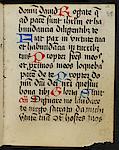 domũ dauid Rogate q̃
ad pacẽ sunt ihrlm et ha
bundancia diligentib; te
Fiat pax in virtute tua
et habundancia in turrib;
tuis Propter fr̃es meos
et proximos meos loqueba
pacẽ de te Propter do
mũ dñi dei nr̃i quesiui
bona tibi Gloria Sicut
Dignare me laudare
te virgo sacrata da michi
virtutẽ cont̃ hostes tuos